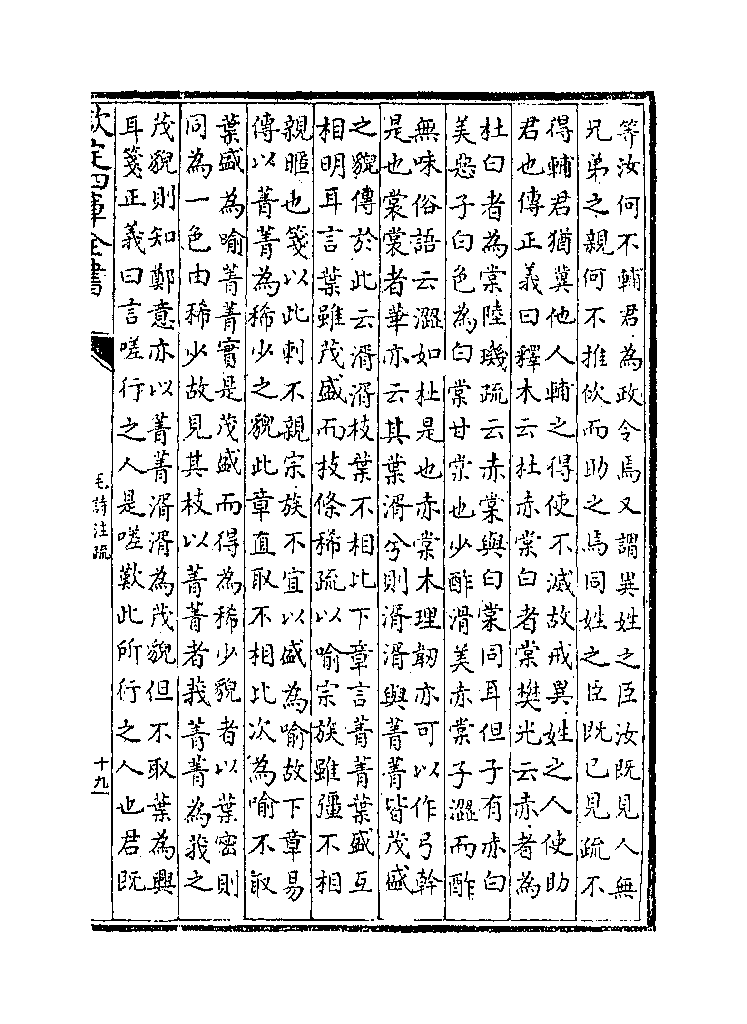 等汝何不輔君為政令焉又謂異姓之臣汝既見人無
兄弟之親何不推佽而助之焉同姓之臣既已見疏不
得輔君猶冀他人輔之得使不滅故戒異姓之人使助
君也傳正義曰釋木云杜赤棠白者棠樊光云赤者為
杜白者為棠陸璣疏云赤棠與白棠同耳但子有赤白
美惡子白色為白棠甘棠也少酢滑美赤棠子澀而酢
無味俗語云澀如杜是也赤棠木理韌亦可以作弓幹
是也裳裳者華亦云其葉湑兮則湑湑與菁菁皆茂盛
之貌傳於此云湑湑枝葉不相比下章言菁菁葉盛互
相明耳言葉雖茂盛而枝條稀疏以喻宗族雖彊不相
親暱也箋以此刺不親宗族不宜以盛為喻故下章易
傳以菁菁為稀少之貌此章直取不相比次為喻不取
葉盛為喻菁菁實是茂盛而得為稀少貌者以葉密則
同為一色由稀少故見其枝以菁菁者莪菁菁為莪之
茂貌則知鄭意亦以菁菁湑湑為茂貌但不取葉為興
耳箋正義曰言嗟行之人是嗟歎此所行之人也君既
欽定四庫全書
毛詩注疏
十九